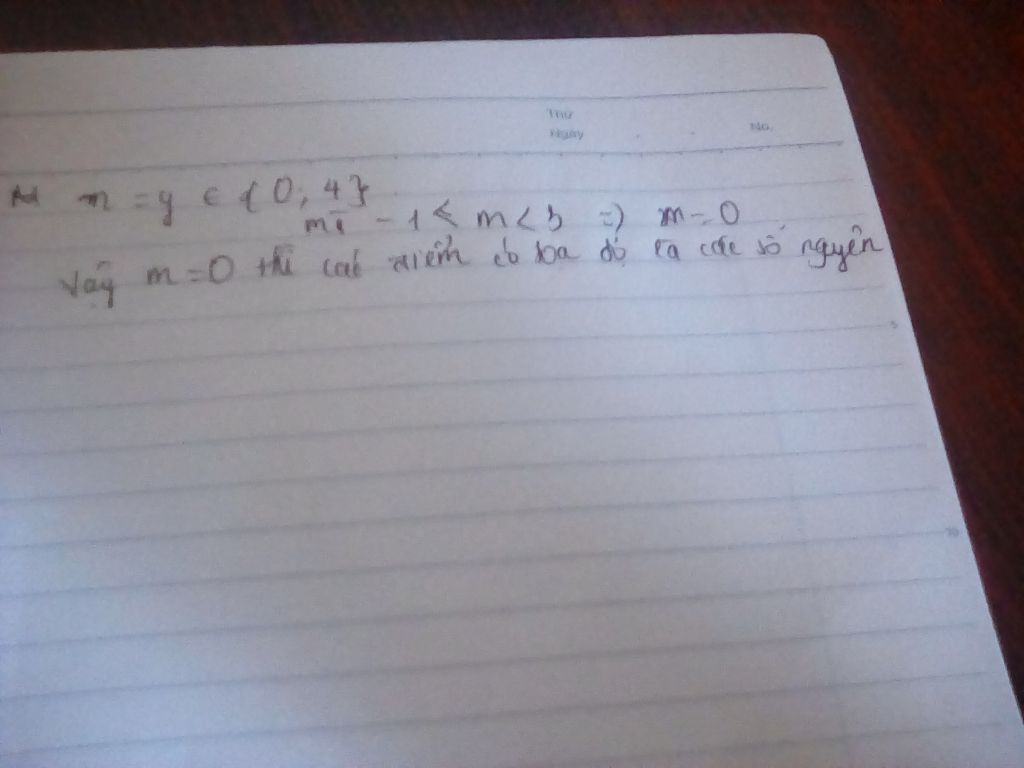 Thứ
Ngày No.
m = y ∈ {0; 4}
mà -1 ≤ m < 3 => m = 0
Vậy m = 0 thì các điểm có tọa độ là các số nguyên